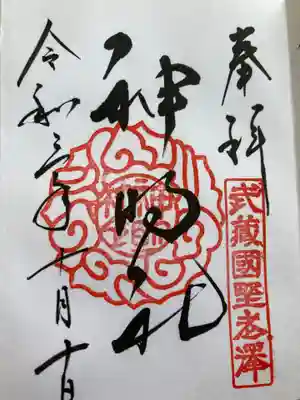 奉拝
武蔵國野老澤
神明社
令和三年十月十日